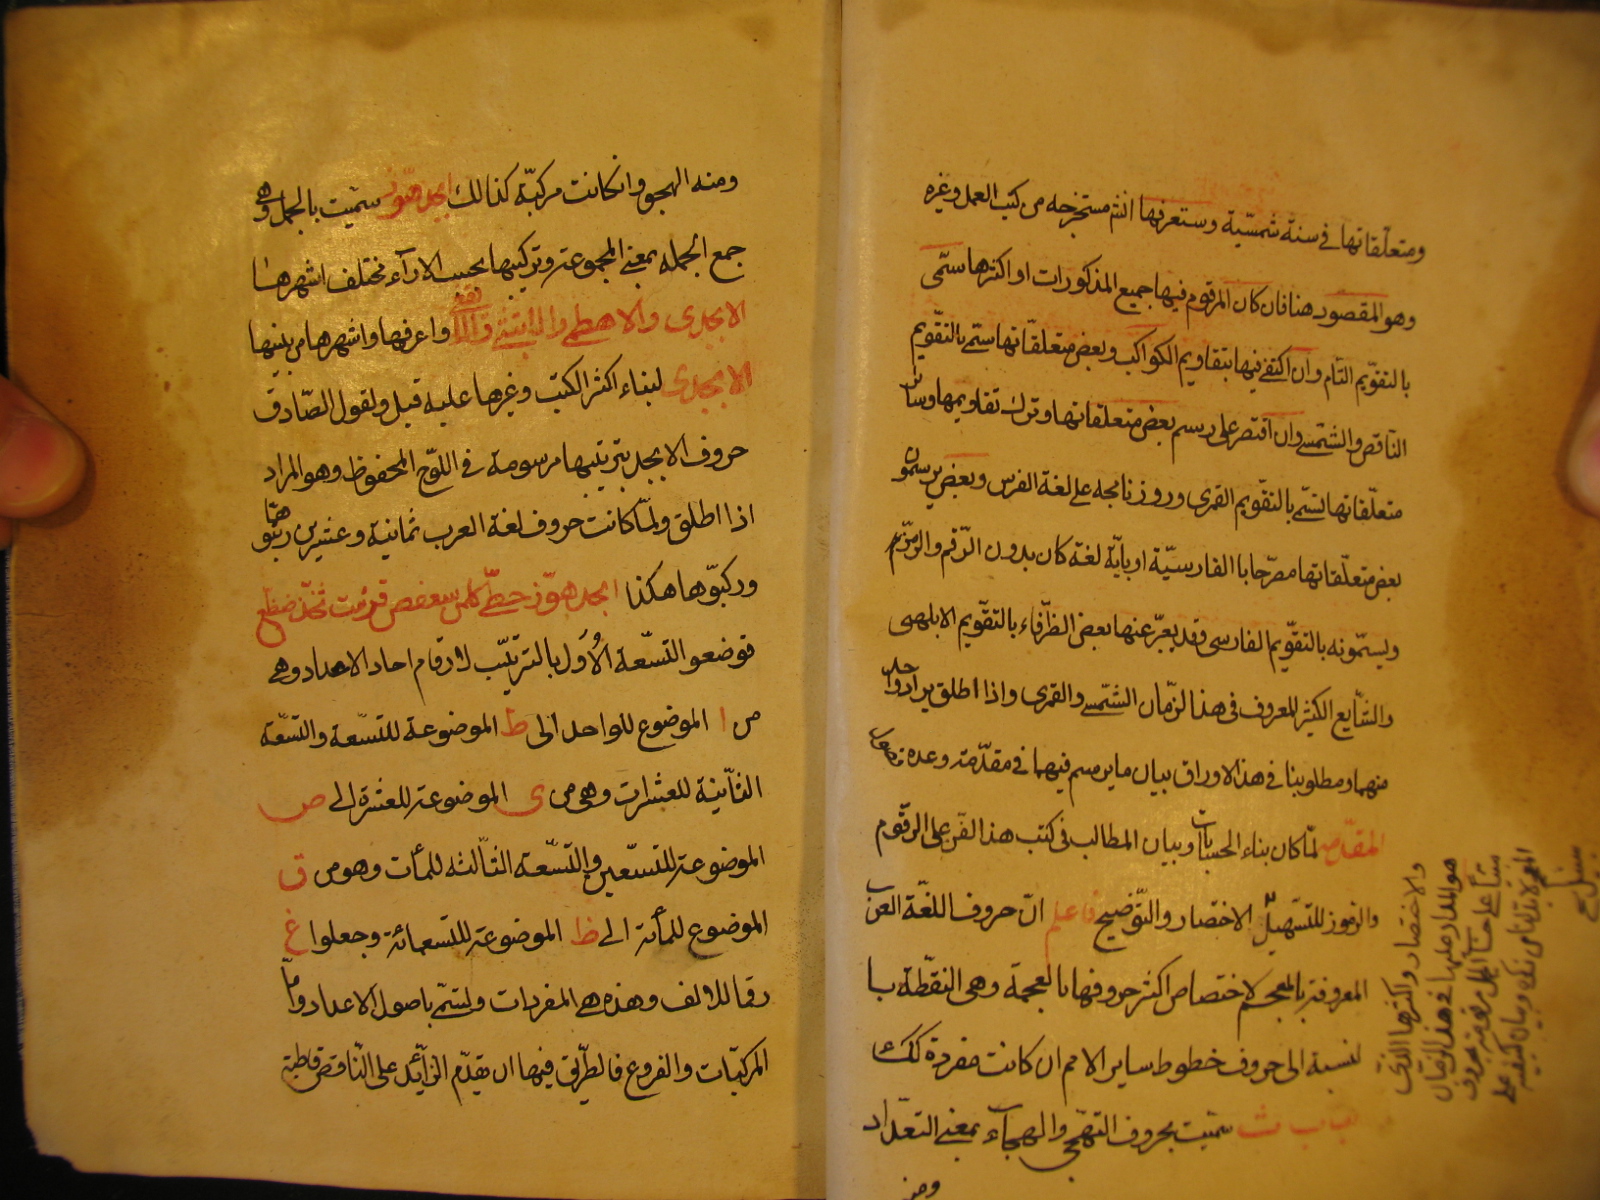 ومتعلّقاتها في سنة شمسّية وستعرفها انش مستخرجه من كتب العمل وغيره
وهو المقصود هنا فان كان المرقوم فيها جميع المذكورات او اكثرها سمّى
بالتقويم التام وان اكتفى فيها بتقاويم الكواكب وبعض متعلقاتها سمّى بالتقويم
الناقص والشمسي وان اقتصر على رسم بعض متعلقاتها وترك تقاويمها وسائر
متعلّقاتها سمّى بالتقويم القمرى وروزنامجه على لغة الفرس وبعض يرسمون
بعض متعلّقاتها مصرّحا بالفارسيّة او بايّة لغة كان بدون الرّقم والرّمز
ويسمّونه بالتقويم الفارسى وقد يعبّر عنها بعض الظرّفاء بالتقويم الابلهى
والشّايع الكثير المعروف فى هذا الزمان الشمسى والقمرى واذا اطلق يراد واحد
منهما ومطلوبنا فى هذا الاوراق بيان ما يرسم فيهما فى مقدّمة وعدة فصول
المقدّمه لمّا كان بناء الحسابات وبيان المطالب فى كتب هذا الفن على الرقوم
والرموز للتسهيل الاختصار والتوضيح فاعلم انّ حروف اللغّة العرب
المعروفة بالمعجم لاختصاص اكثر حروفها بالعجمة وهى النقطة با
لنسبة الى حروف خطوط ساير الامم ان كانت مفردة كك
اب ت ث سمّيت بحروف التهجّى والهجاء بمعنى التعداد
ومنه
والاختصار واكثرها الذى
هو المدار عليها فى هذا الزمان
ومنه الهجو وانكانت مركبّة كذالك ابجد هوز سمّيت بالجمل وهى
جمع الجمله بمعنى المجموعة وتركيبها بحسب الاراء مختلف اشهرها
الابجدى والاهطمى والابتثى واعرفها واشهرها من بينها
الابجدى لبناء اكثر الكتب وغيرها عليه قيل ولقول الصّادق
حروف الابجد بترتيبها مرسومة فى اللوّح المحفوظ وهو المراد
اذا اطلق ولمّا كانت حروف لغة العرب ثمانية وعشرين رتبّوها
وركبّوها هكذا ابجد هوّز حطّى كلمن سعفص قرشت ثخّذ ضظغ
فوضعوا التسّعة الاُوَل بالترتيّب لارقام احاد الاعداد وهى
من ا الموضوع للواحد الى ط الموضوعة للتسّعة والتسّعة
الثانية للعشرات وهى من ى الموضوعة للعشرة الى ص
الموضوعة للتسّعين والتسّعة الثاّلثه للمأت وهو من ق
الموضوع للمأئة الى ظ الموضوعة للتسعمائة وجعلوا غ
رقما للالف وهذه هى المفردات وتسمّى باصول الاعداد وامّا
المركبّات والفروع فالطرّيق فيها ان يقدّم الزّايد على الناقص قاطبة